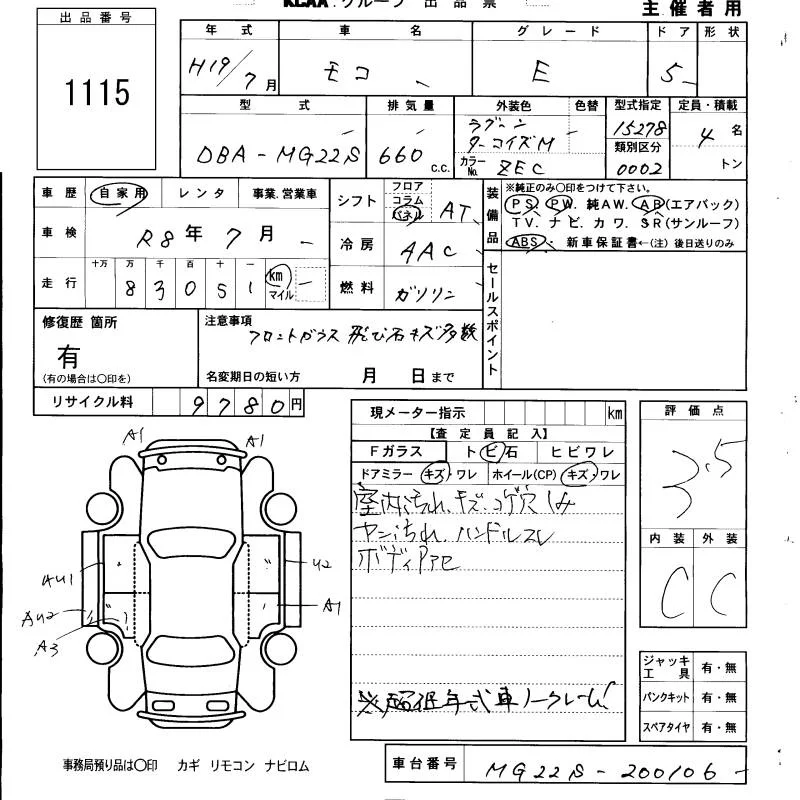 KCAA グループ 出品票
主催者用
出品番号
1115
年式 車名 グレード ドア 形状
H19/7月 モコ E 5
型式 排気量 外装色 色替 型式指定 定員・積載
DBA-MG22S 660 c.c. ラグーンターコイズM 15278 4名
カラーNo. ZEC 類別区分 0002 トン
車歴 自家用 レンタ 事業.営業車
シフト フロア コラム パネル AT
装備品 ※純正のみ〇印をつけて下さい。
PS. PW. 純AW. AB(エアバック)
TV. ナビ. カワ. SR(サンルーフ)
ABS. 新車保証書←(注) 後日送りのみ
車検 R8年7月
冷房 AAC
走行 十万 万 千 百 十 一
83051 km マイル
燃料 ガソリン
セールスポイント
修復歴 箇所
有
(有の場合は〇印を)
注意事項
フロントガラス 飛び石キズ多数
名変期日の短い方 月 日まで
リサイクル料 9780円
現メーター指示 km
【査定員記入】
Fガラス トビ石 ヒビワレ
ドアミラー キズ・ワレ ホイール(CP) キズ・ワレ
室内汚れ.キズ.コゲ穴 しみ
ヤニ汚れ.ハンドルスレ
ボディ
※超低年式車ノークレーム!
評価点
3.5
内装 外装
C C
A1 A1
AU1 U2
AU2 A1
A3
ジャッキ工具 有・無
パンクキット 有・無
スペアタイヤ 有・無
事務局預り品は〇印 カギ リモコン ナビロム
車台番号 MG22S-200106